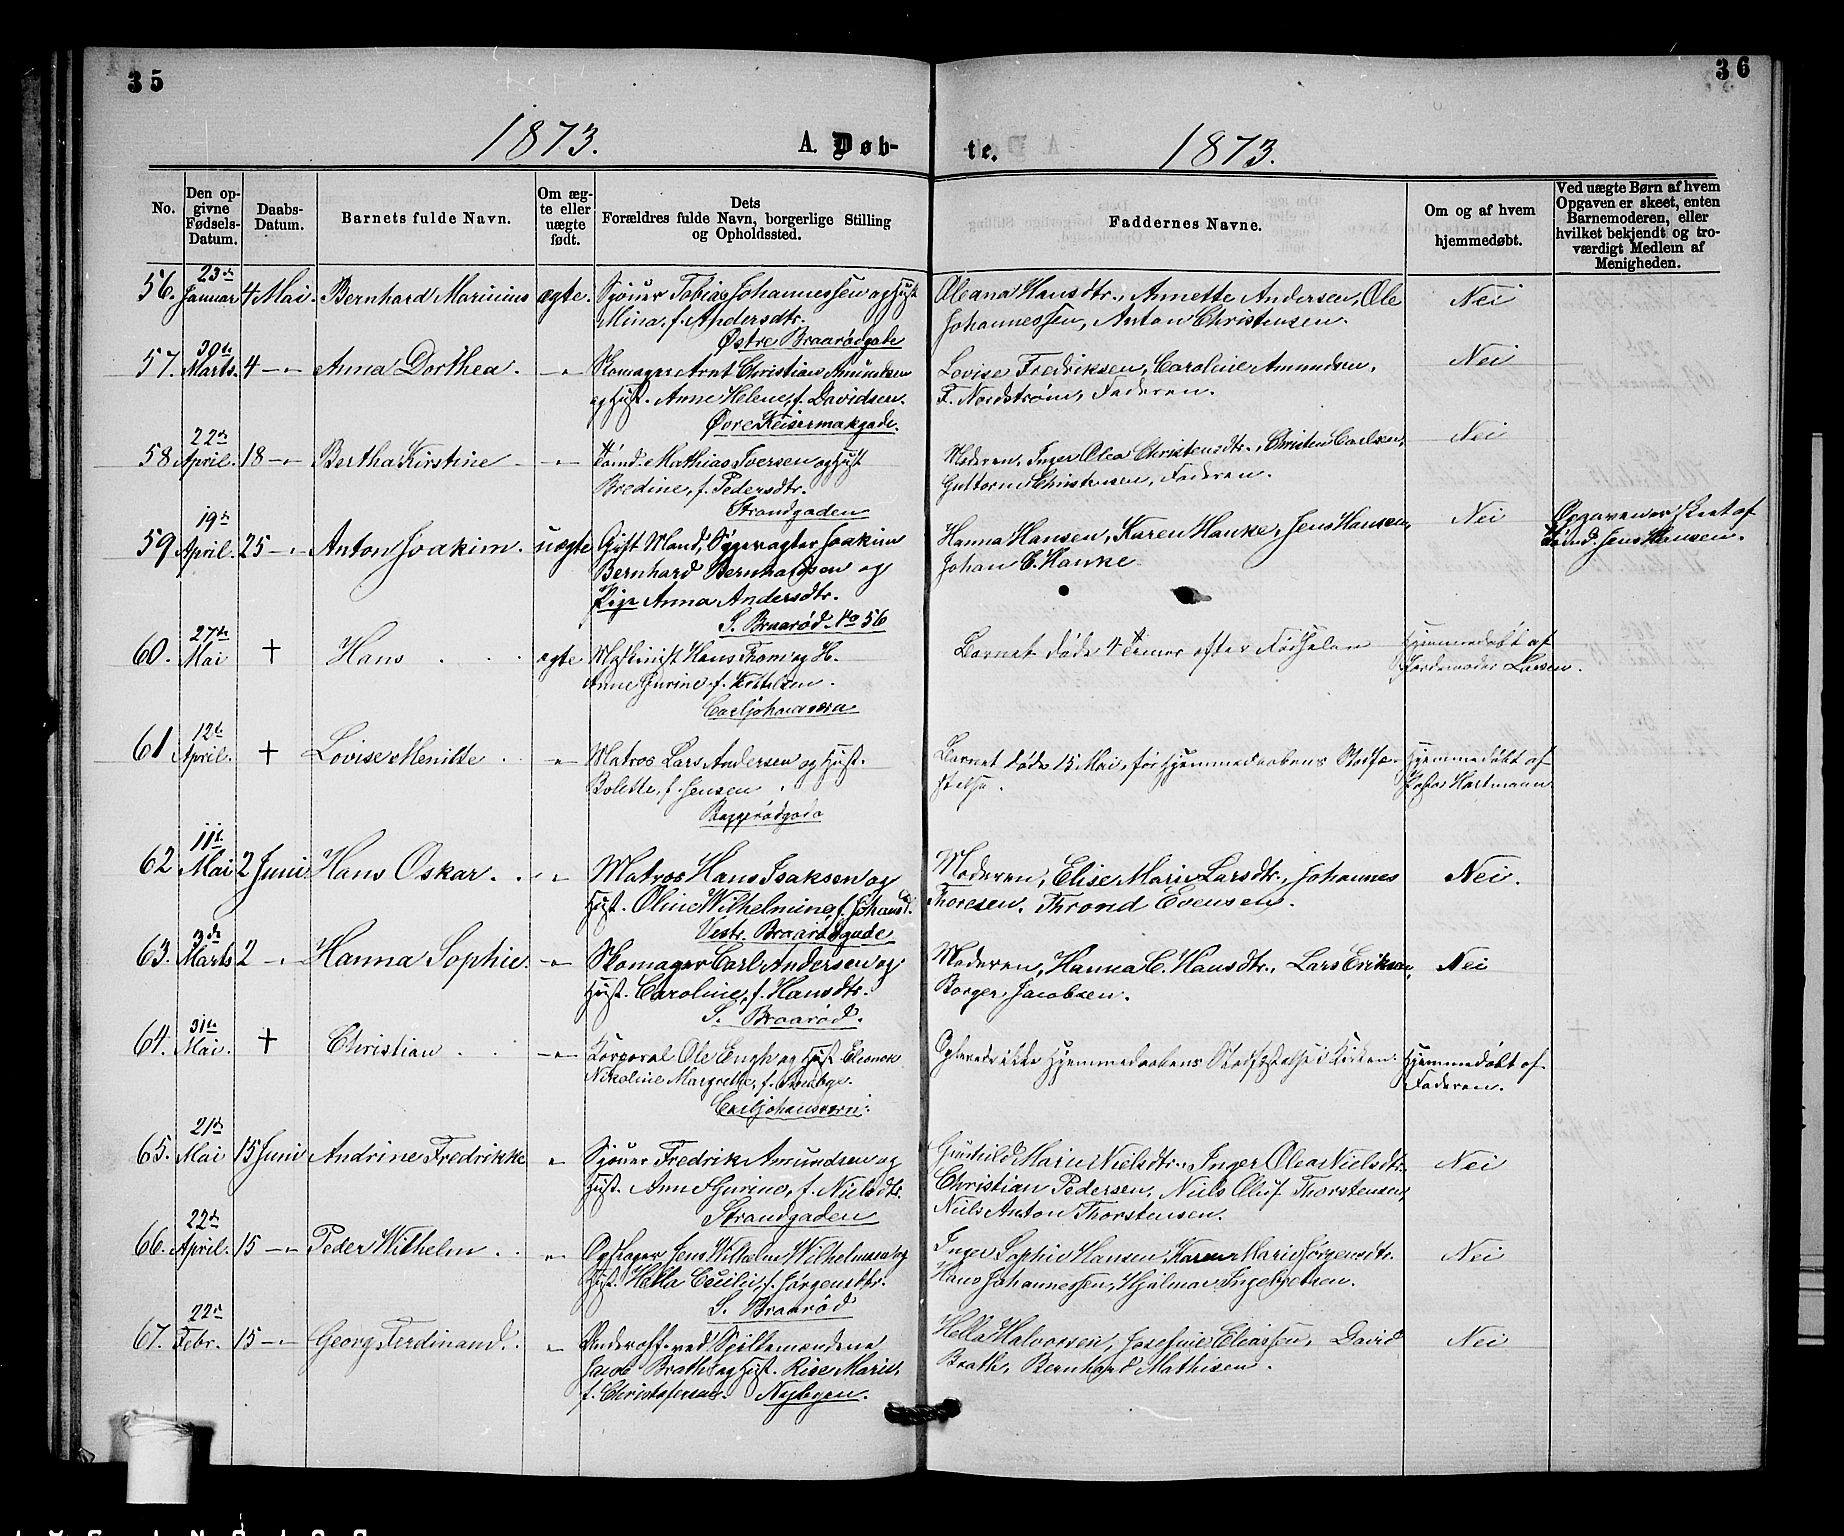 35
36
1873.
A. Døb-
te.
1873.
No.
Den op-
givne
Fødsels-
Datum.
Daabs-
Datum.
Barnets fulde Navn.
Om æg-
te eller
uægte
født.
Dets
Forældres fulde Navn, borgerlige Stilling
og Opholdssted.
Faddernes Navne.
Om og af hvem
hjemmedøbt.
Ved uægte Børn af hvem
Opgaven er skeet, enten
Barnemoderen, eller
hvilket bekjendt og tro-
værdigt Medlem af
Menigheden.
56. 23de Januar 4 Mai. Bernhard Marinius ægte.
Sjøuer Tobias Johannessen og Hust
Mina, f. Andersdtr.
Østre Braarødgade
Oleana Hansdtr., Annette Andersen, Ole
Johannessen, Anton Christensen.
Nei
57. 30te Marts. 4 -"- Anna Dorthea. -"-
Skomager Arnt Christian Amundsen
og Hust. Anne Helene, f. Davidsen.
Øvre Keisermakgade.
Lovise Fredriksen, Caroline Amundsen,
F. Nordstrøm, Faderen.
Nei
58 22de April. 18 -"- Bertha Kirstine -"-
Tømd. Mathias Iversen og Hust
Bredine, f. Pedersdtr.
Strandgaden
Moderen, Inger Olea Christensdtr., Christen Carlsen,
Guttorm Christensen, Faderen.
Nei
59 19de April. 25 -"- Anton Joakim. uægte
Gift Mand, Sygevogter Joakim
Bernhard Bernhardsen og
Pige Anna Andersdtr.
S. Braarød No 56
Hanna Hansen, Karen Hanke, Jens Hansen,
Johan C. Hanke.
Nei
Opgaven er skeet af
Tømd. Jens Hansen.
60. 27de Mai † Hans ægte
Maskinist Hans Thom og H.
Anne Gurine, f. Kittelsen.
Carljohansværn
Barnet døde 4 Timer efter Fødselen
Hjemmedøbt af
Jordemoder Larsen.
61 12te April. † Lovise Menikke -"-
Matros Lars Andersen og Hust.
Bolette, f. Jensen
Baggerødgade
Barnet døde 15 Mai, før Hjemmedaabens Stadfæ-
stelse.
Hjemmedøbt af
Hartmann
62 11te Mai 2 Juni Hans Oskar. -"-
Matros Hans Isaksen og
Hust. Oline Wilhelmine, f. Johansd.
Vestr. Braarødgade
Moderen, Elise Marie Larsdtr., Johannes
Thoresen, Thrond Evensen.
Nei.
63. 3de Marts 2 -"- Hanna Sophie. -"-
Skomager Carl Andersen og
Hust. Caroline, f. Hansdtr.
S. Braarød.
Moderen, Hanna C. Hansdtr., Lars Eriksen,
Borger Jacobsen.
Nei
64. 31te Mai. † Christian -"-
Korporal Ole Engh og Hust Eleonore
Nikoline Margrethe, f.
Carljohansværn.
Oplevede ikke Hjemmedaabens Stadfæstelse i Kirken.
Hjemmedøbt af
Faderen.
65. 21de Mai 15 Juni Andrine Fredrikke "
Sjøuer Fredrik Amundsen og
Hust. Anne Gurine, f. Nielsdtr.
Strandgaden
Gunhild Marie Nielsdtr., Inger Olea Nielsdtr.
Christian Pedersen, Niels Oluf Thorstensen,
Niels Anton Thorstensen.
Nei
66. 22de April. 15 -"- Peder Wilhelm -"-
Opstager Jens Wilhelm Wilhelmsen og
Hust. Helle Cecilie, f. Jørgensdtr.
S. Braarød
Inger Sophie Hansen, Karen Marie Jørgensdtr.
Hans Johannessen, Hjalmar Ingebretsen.
Nei
67. 22de Febr. 15 -"- Georg Ferdinand. "
Underoff. ved Spillemændene
Jacob Brath og Hust. Rise Marie,
f. Christofersen. Nybyen.
Hella Halvorsen, Josefine Eliassen, David
Brath, Bernhard Mathisen.
Nei